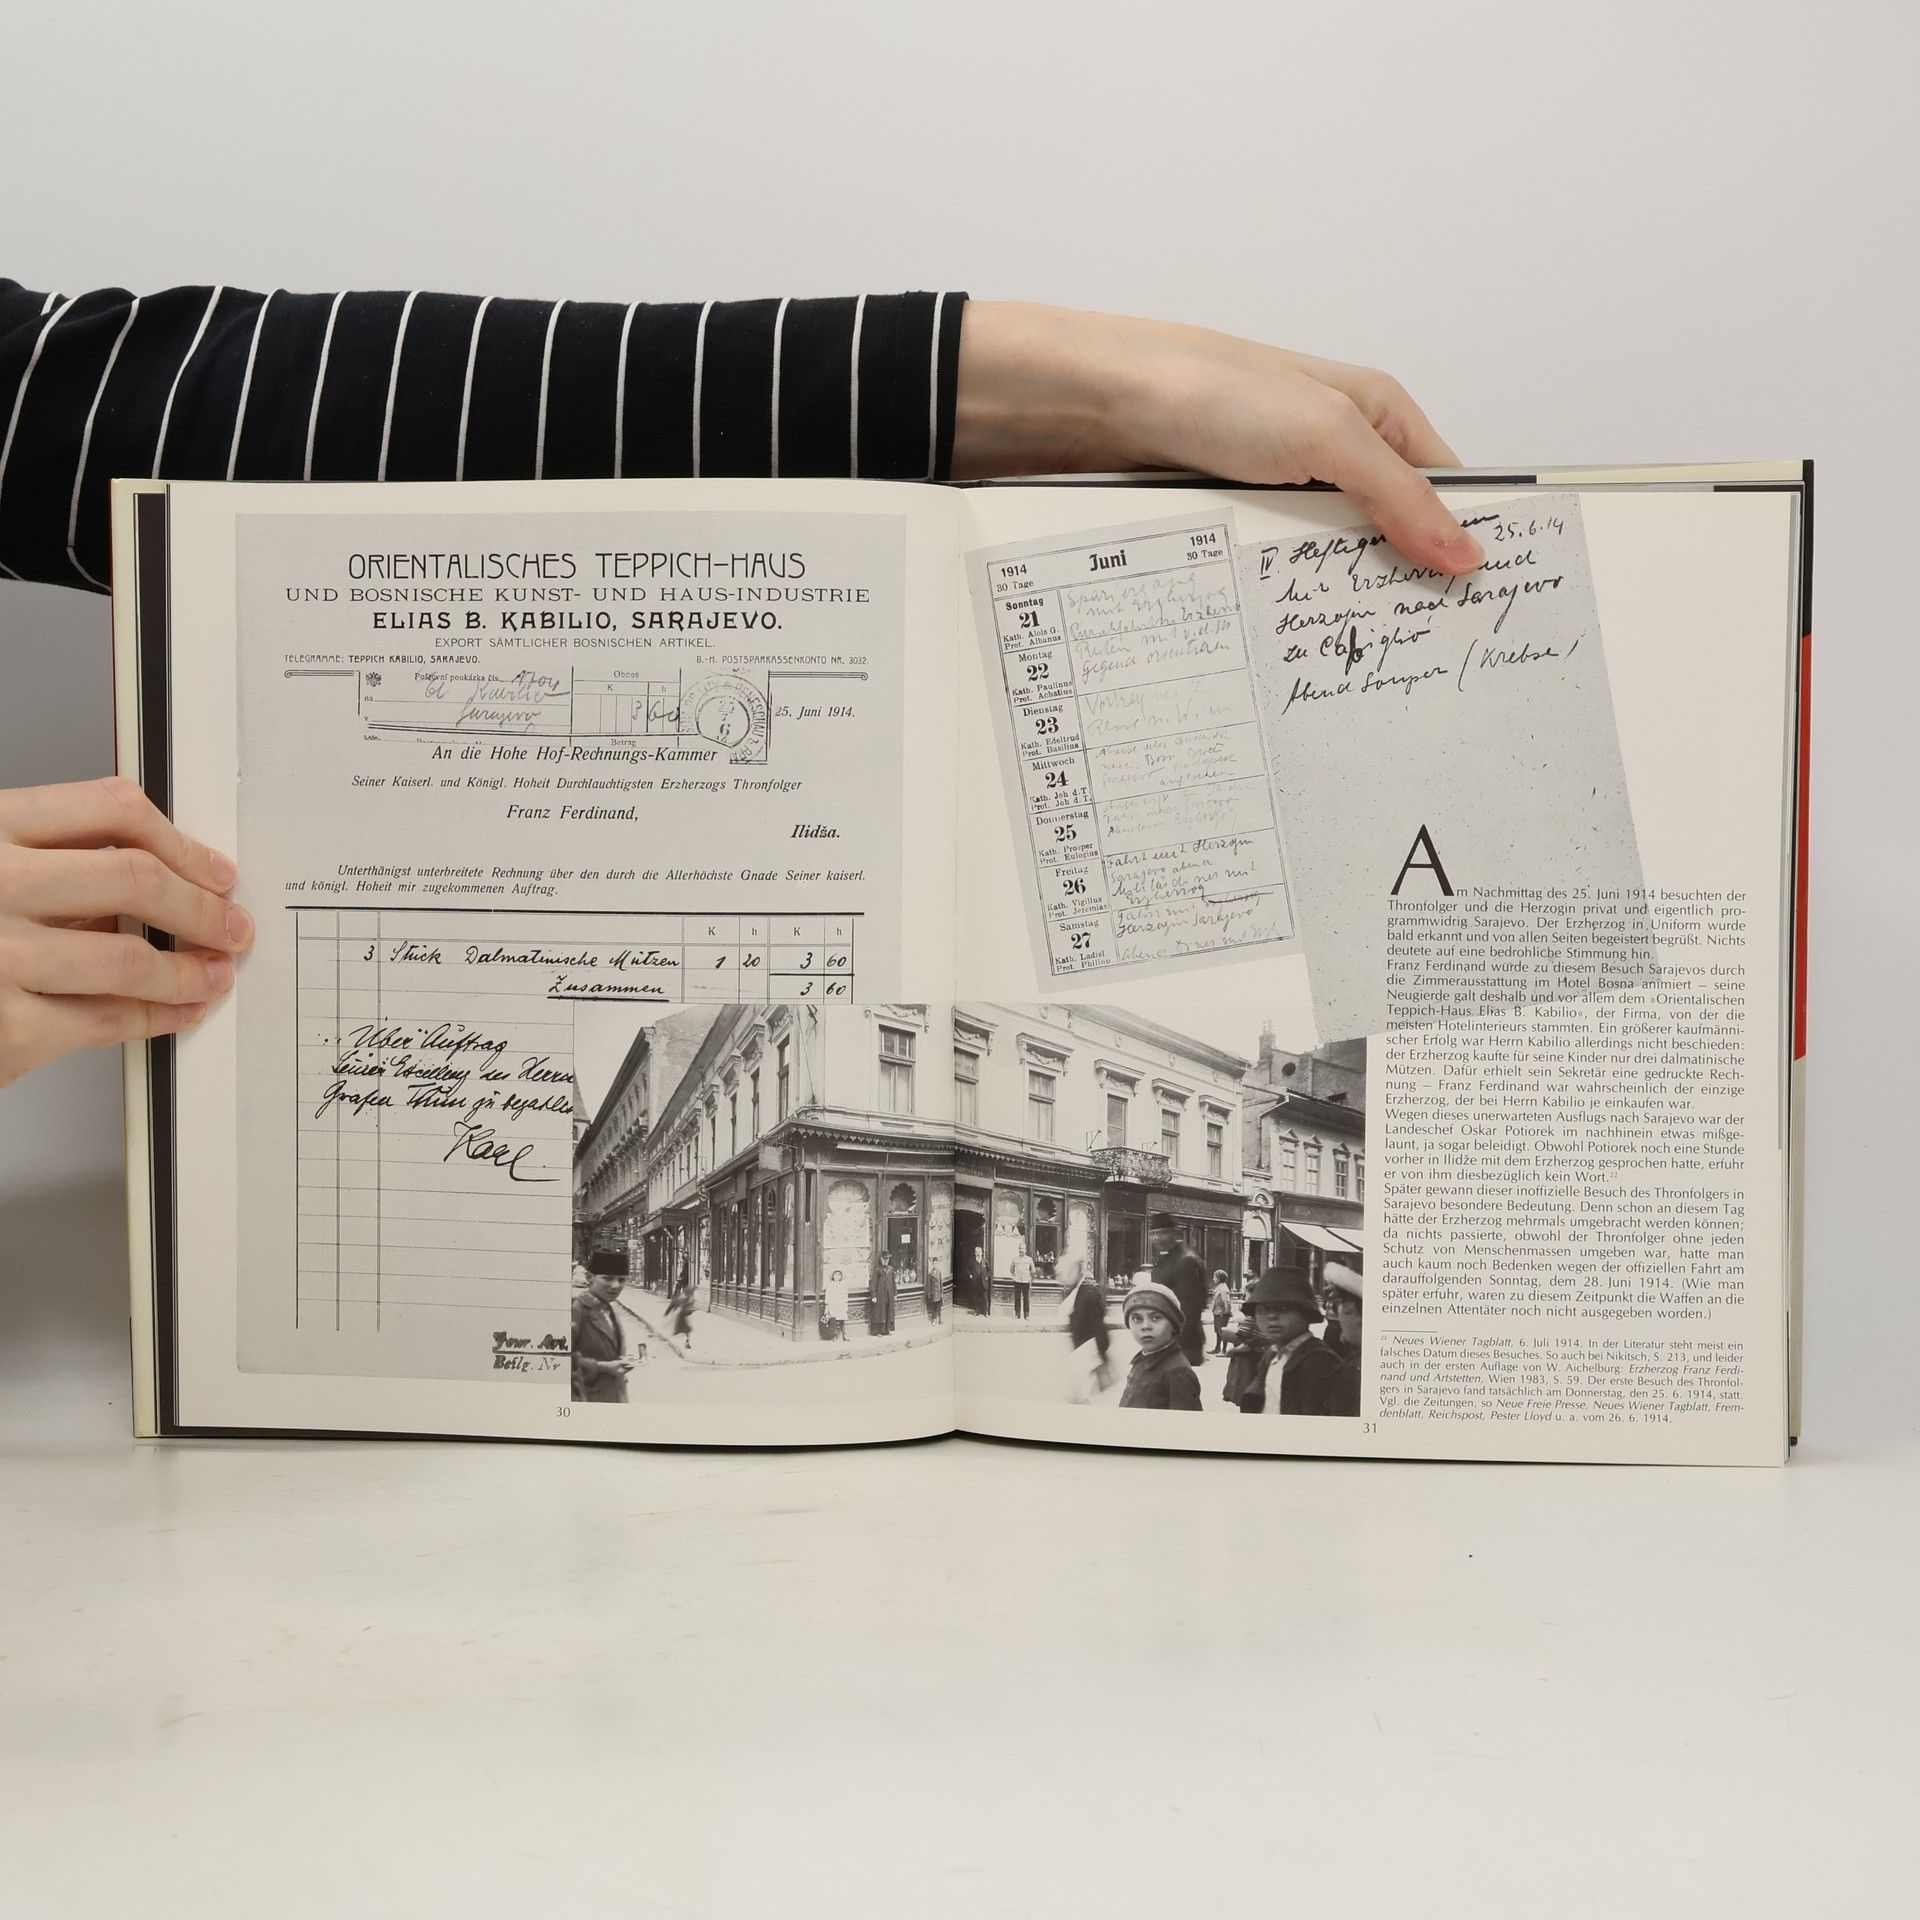 ORIENTALISCHES TEPPICH-HAUS
UND BOSNISCHE KUNST- UND HAUS-INDUSTRIE
ELIAS B. KABILIO, SARAJEVO.
EXPORT SÄMTLICHER BOSNISCHEN ARTIKEL.
TELEGRAMME: TEPPICH KABILIO, SARAJEVO. B.-H. POSTSPARKASSENKONTO NR. 3032.
Poštovní poukázka čís. Obnos
Kabilio K h
na
Sarajevo
v
25. Juni 1914.
Betrag
An die Hohe Hof-Rechnungs-Kammer
Seiner Kaiserl. und Königl. Hoheit Durchlauchtigsten Erzherzogs Thronfolger
Franz Ferdinand,
Ilidša.
Unterthänigst unterbreitete Rechnung über den durch die Allerhöchste Gnade Seiner kaiserl.
und königl. Hoheit mir zugekommenen Auftrag.
K h K h
3 Stück Dalmatinische Mützen 1 20 3 60
Zusammen 3 60
Über Auftrag
Seiner des Herrn
Grafen Thun zu
Karl
30
1914 Juni 1914
30 Tage 30 Tage
Sonntag
21
Kath. Alois G.
Prot. Albanus
Montag
22
Kath. Paulinus
Prot. Achatius
Dienstag
23
Kath. Edeltrud
Prot. Basilius
Mittwoch
24
Kath. Joh d.T.
Prot. Joh d.T.
Donnerstag
25
Kath. Prosper
Prot. Eulogius
Freitag
26
Kath. Vigilius
Prot. Jeremias
Samstag
27
Kath. Ladisl
Prot. Philipp
Spaziergang
mit Erzherzog
Reiten mit
Gegend orientieren
Fahrt mit Herzogin
Sarajevo abend
Militärdiner mit
Erzherzog
Fahrt mit
Herzogin Sarajevo
Abend Diner mit
25.6.14
IV. Heftiger
Mit und
Herzogin nach Sarajevo
zu
Abend Souper (Krebse)
Am Nachmittag des 25. Juni 1914 besuchten der
Thronfolger und die Herzogin privat und eigentlich pro-
grammwidrig Sarajevo. Der Erzherzog in Uniform wurde
bald erkannt und von allen Seiten begeistert begrüßt. Nichts
deutete auf eine bedrohliche Stimmung hin.
Franz Ferdinand wurde zu diesem Besuch Sarajevos durch
die Zimmerausstattung im Hotel Bosna animiert – seine
Neugierde galt deshalb und vor allem dem »Orientalischen
Teppich-Haus Elias B. Kabilio«, der Firma, von der die
meisten Hotelinterieurs stammten. Ein größerer kaufmänni-
scher Erfolg war Herrn Kabilio allerdings nicht beschieden:
der Erzherzog kaufte für seine Kinder nur drei dalmatinische
Mützen. Dafür erhielt sein Sekretär eine gedruckte Rech-
nung – Franz Ferdinand war wahrscheinlich der einzige
Erzherzog, der bei Herrn Kabilio je einkaufen war.
Wegen dieses unerwarteten Ausflugs nach Sarajevo war der
Landeschef Oskar Potiorek im nachhinein etwas mißge-
launt, ja sogar beleidigt. Obwohl Potiorek noch eine Stunde
vorher in Ilidže mit dem Erzherzog gesprochen hatte, erfuhr
er von ihm diesbezüglich kein Wort.²²
Später gewann dieser inoffizielle Besuch des Thronfolgers in
Sarajevo besondere Bedeutung. Denn schon an diesem Tag
hätte der Erzherzog mehrmals umgebracht werden können;
da nichts passierte, obwohl der Thronfolger ohne jeden
Schutz von Menschenmassen umgeben war, hatte man
auch kaum noch Bedenken wegen der offiziellen Fahrt am
darauffolgenden Sonntag, dem 28. Juni 1914. (Wie man
später erfuhr, waren zu diesem Zeitpunkt die Waffen an die
einzelnen Attentäter noch nicht ausgegeben worden.)
²² Neues Wiener Tagblatt, 6. Juli 1914. In der Literatur steht meist ein
falsches Datum dieses Besuches. So auch bei Nikitsch, S. 213, und leider
auch in der ersten Auflage von W. Aichelburg: Erzherzog Franz Ferdi-
nand und Artstetten, Wien 1983, S. 59. Der erste Besuch des Thronfol-
gers in Sarajevo fand tatsächlich am Donnerstag, den 25. 6. 1914, statt.
Vgl. die Zeitungen, so Neue Freie Presse, Neues Wiener Tagblatt, Frem-
denblatt, Reichspost, Pester Lloyd u. a. vom 26. 6. 1914.
31